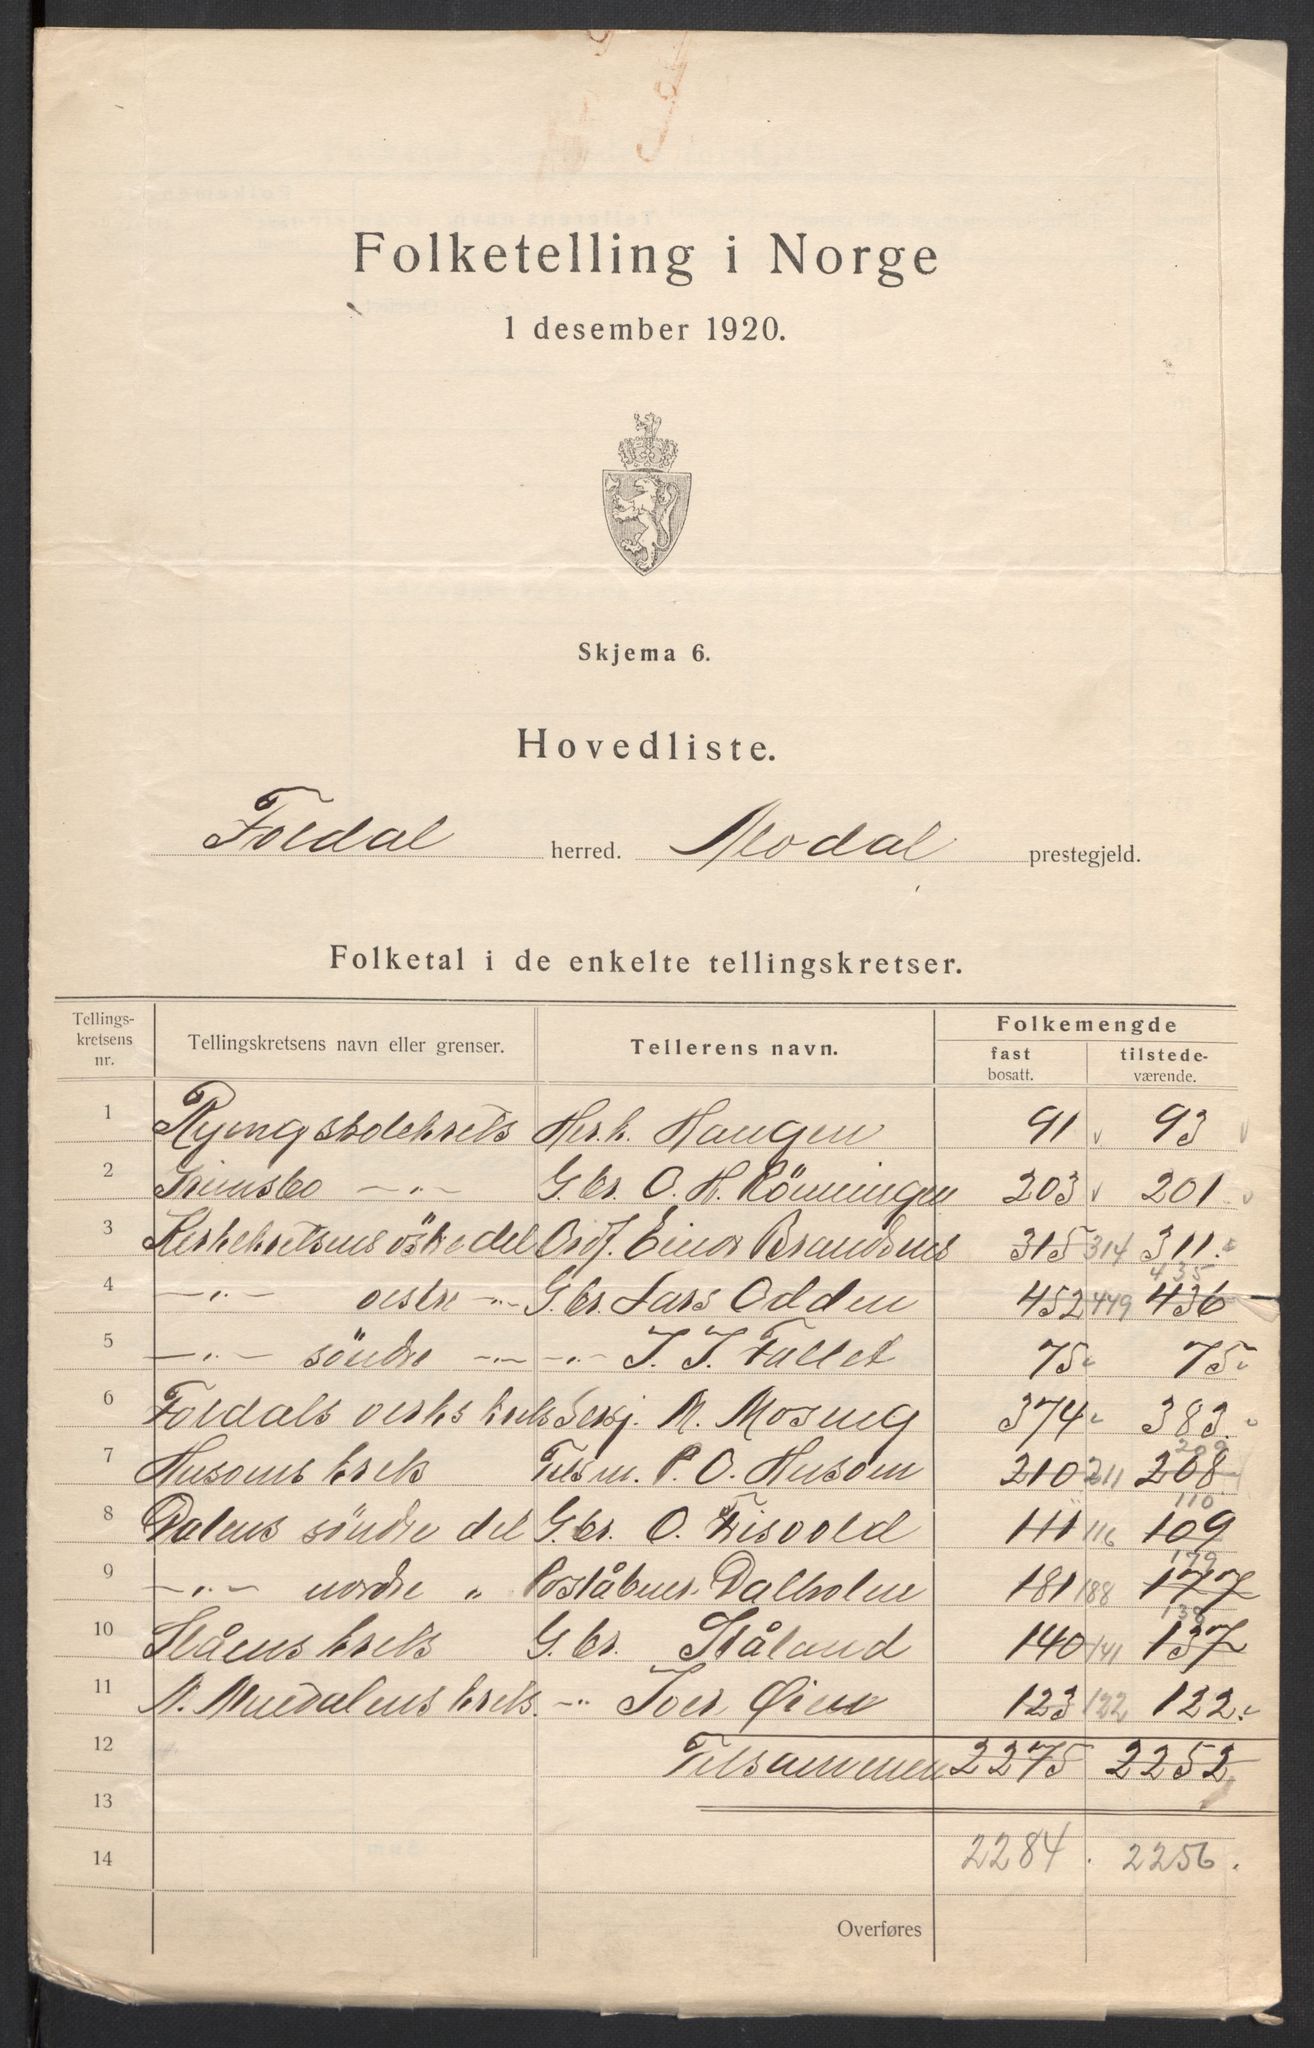 Folketelling i Norge
1 desember 1920.
Skjema 6.
Hovedliste.
Foldal herred. Alvdal prestegjeld.
Folketal i de enkelte tellingskretser.
Tellings-kretsens nr. Tellingskretsens navn eller grenser. Tellerens navn. Folkemengde
fast bosatt. tilstede-værende.
1 Ryengstolekrets Herk. Haugen 91 v 93 v
2 Grimsbo -"- G.br. O. H. Rönningen 203 v 201 v
3 Kirkekretsens östre del Ordf. Einar Brandsnes 315 314 311.
435
4 -"- vestre -"- G.br. Lars Odden 452 449 436
5 -"- söndre -"- -"- J. J. Fallet 75 75
6 Foldals verks krets Serg. M. Moseng 374 383.
209
7 Husoms krets Tilsm. P. O. Husom 210 211 208
110
8 Dalens söndre del G.br. O. Frisvold 111 116 109
179
9 -"- nordre " Poståbner Dalholm 181 188 177
138
10 Slåens krets G.br. Slåland 140 141 137
11 N. krets -"- Iver Øien 123 122 122.
12 Tilsammen 2275 2252
13
14 2284. 2256.
Overføres